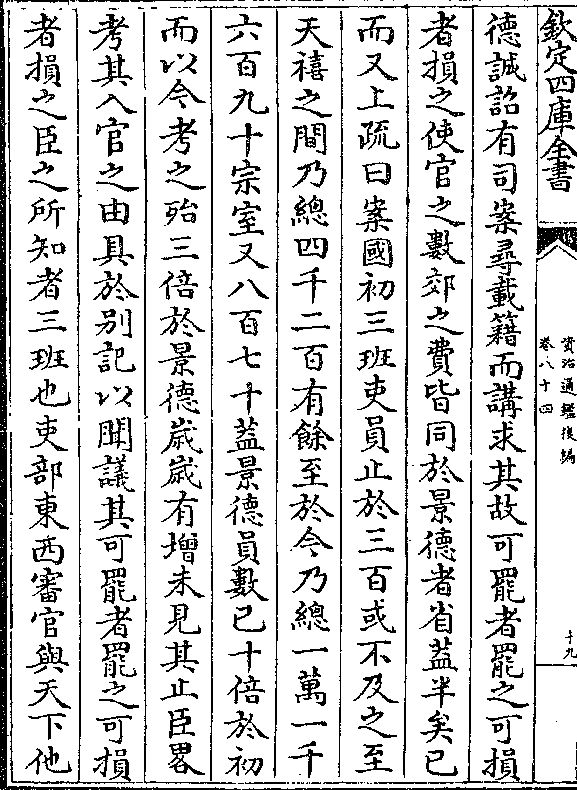 欽定四庫全書
資治通鑑後編
卷八十四
十九
德誠詔有司案尋載籍而講求其故可罷者罷之可損
者損之使官之數郊之費皆同於景德者省蓋半矣已
而又上疏曰案國初三班吏員止於三百或不及之至
天禧之間乃總四千二百有餘至於今乃總一萬一千
六百九十宗室又八百七十蓋景德員數已十倍於初
而以今考之殆三倍於景德歲歲有增未見其止臣畧
考其入官之由具於別記以聞議其可罷者罷之可損
者損之臣之所知者三班也吏部東西審官與天下他